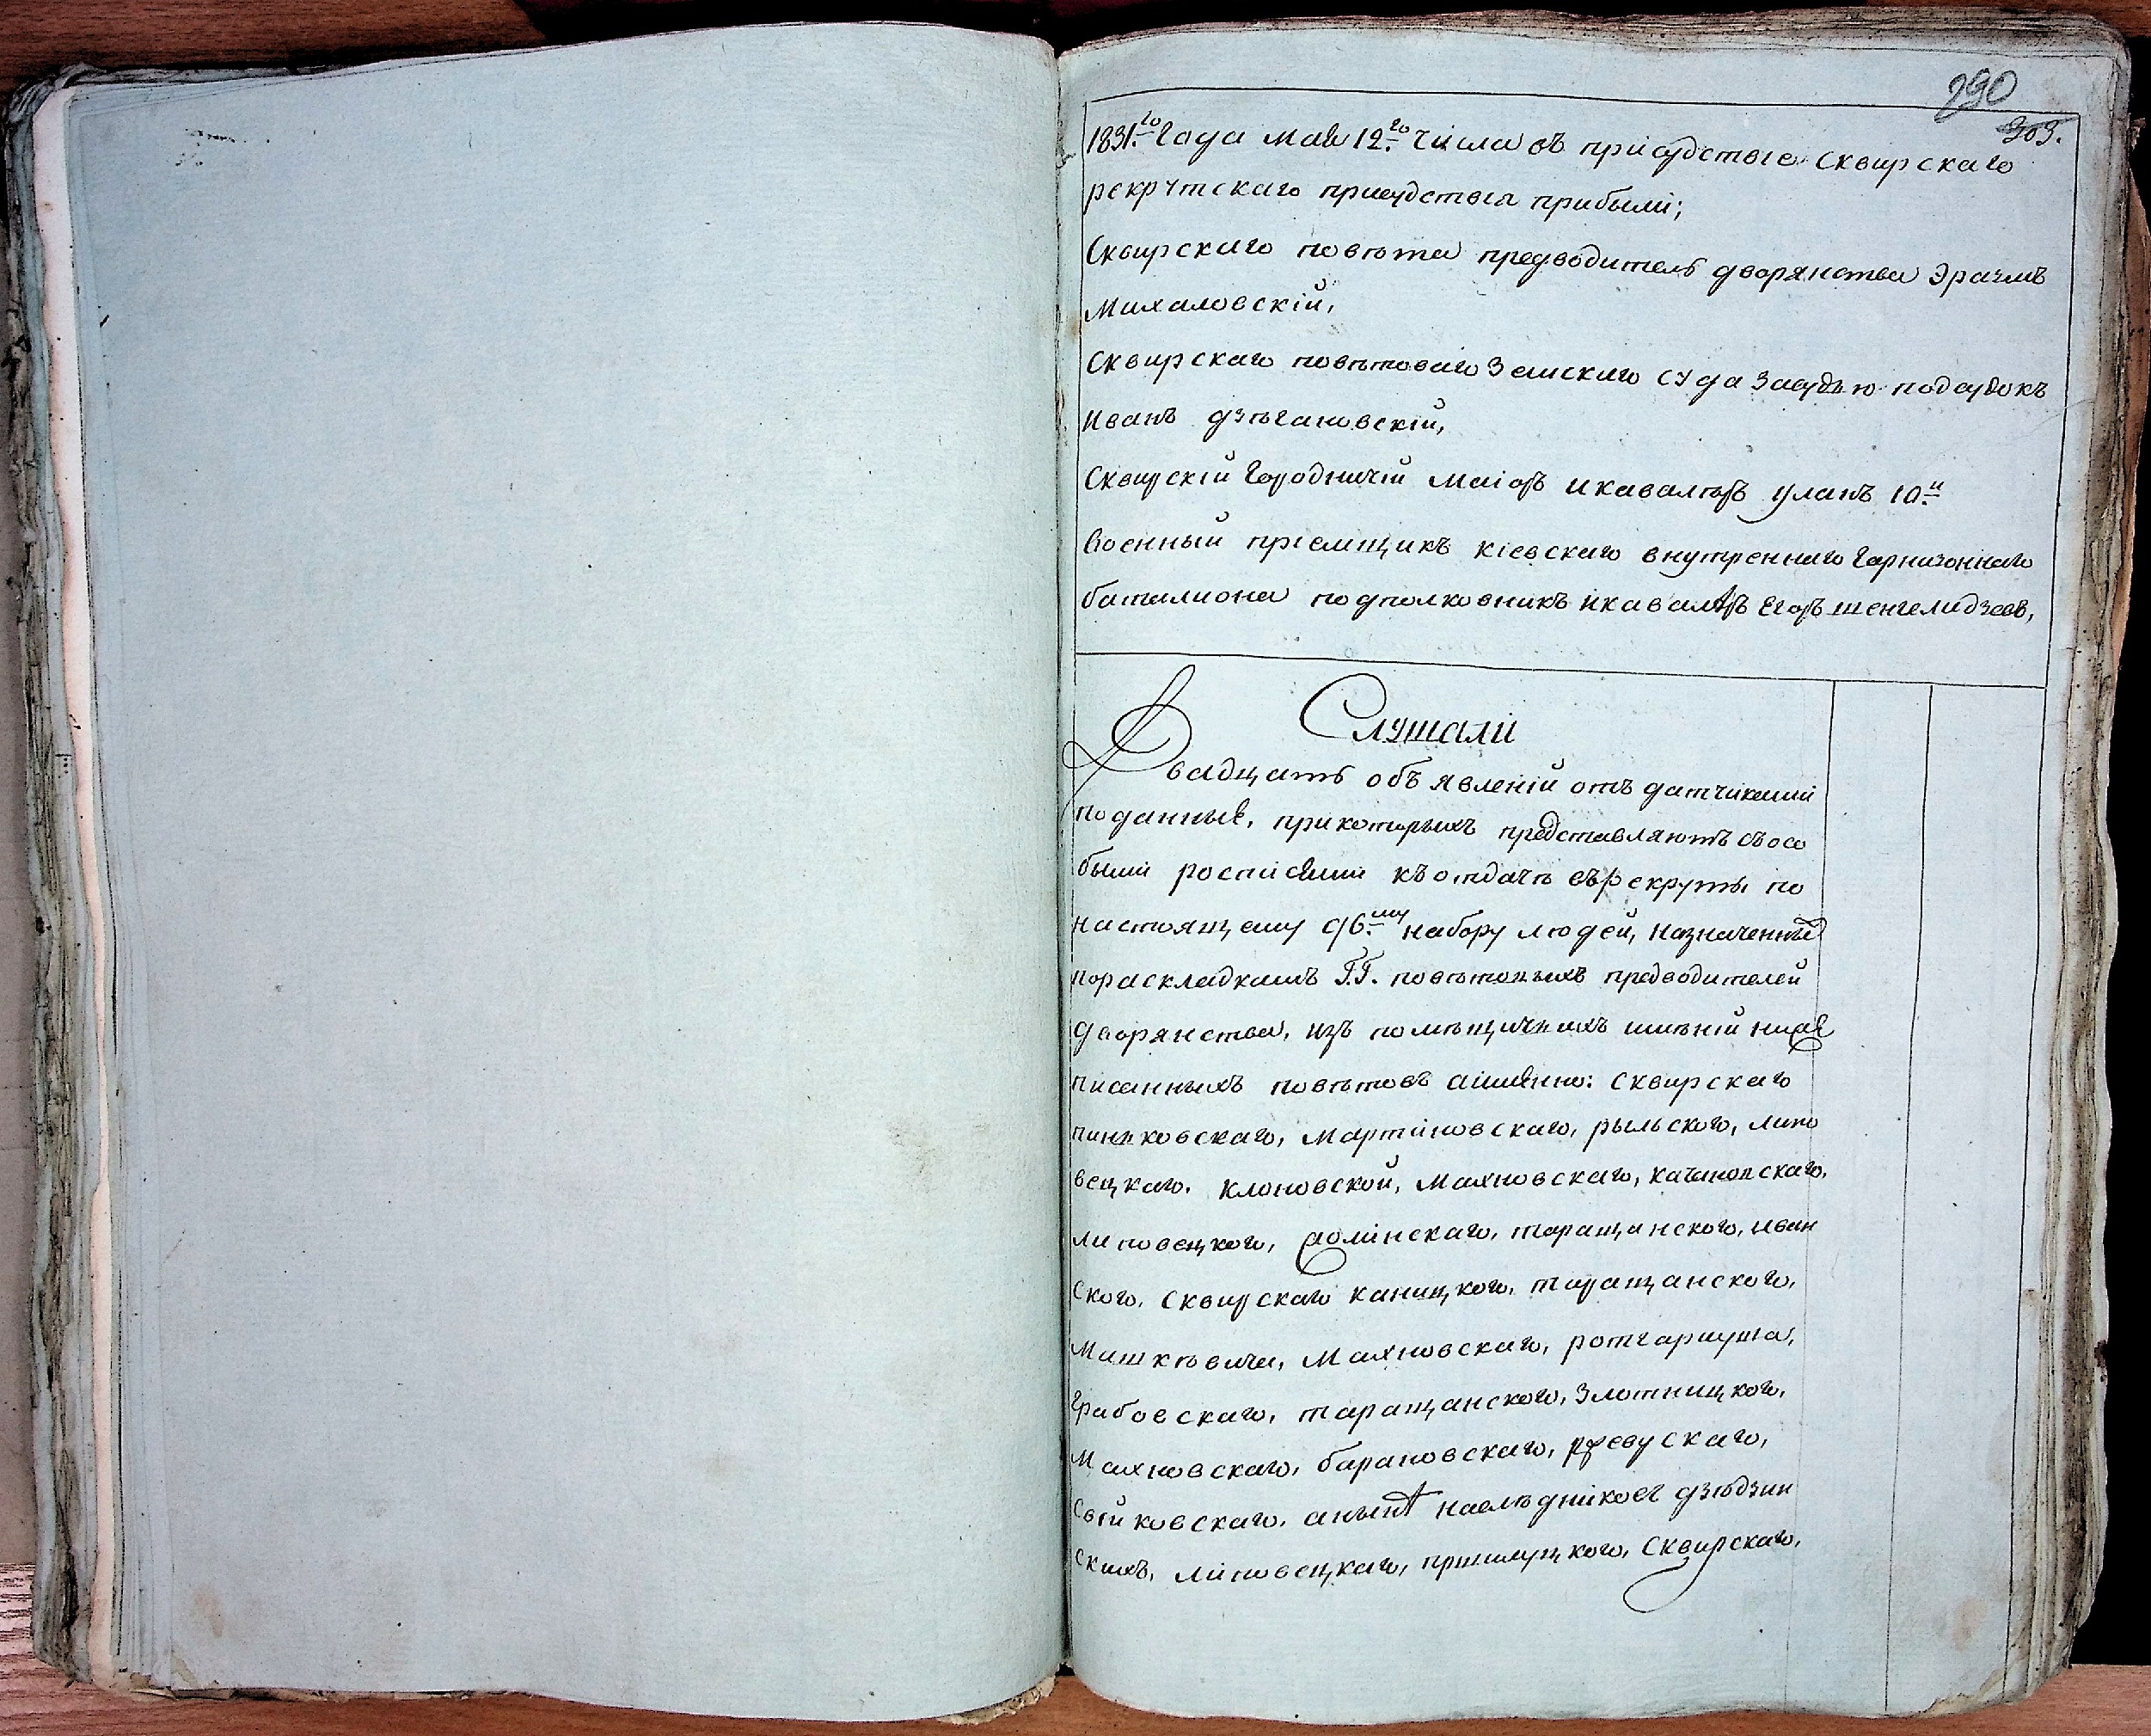 290
303.
1831.го Года мая 12.го числа въ присудствіе Сквирскаго
рекрутскаго присудствія прибыли;
Сквирскаго повѣта предводитель дворянства Эразмъ
Михаловскій,
Сквирскаго повѣтоваго Земскаго суда Засудью подсудокъ
Иванъ
Сквирскій Городничій Маіоръ и кавалѣръ уланъ 10.й
Военный пріемщикъ кіевскаго внутренняго Гарнизоннаго
баталиона подполковникъ и кавалѣръ Егоръ шенгелидзевъ,
Слушали
Двадцать объявленій отъ датчиками
поданныя, при которыхъ представляютъ съ осо
быми росписями къ отдачѣ въ рекруты по
настоящему 96.му набору людей, назначенныя
по раскладкамъ Г.Г. повѣтовыхъ предводителей
дворянства, изъ помѣщичьихъ имѣній ниже
писанныхъ повѣтовъ а имянно: Сквирскаго
Мартиновскаго, рыльского, липо
вецкаго. Клоновской, Махновскаго,
липовецкого, таращанского, иван
ского, Сквирскаго каницкого, таращанского,
Машкѣвича, Махновскаго,
Грабовскаго, таращанского, Злотницкого,
Махновскаго, барановскаго, ржевускаго,
Свѣйковскаго, а нынѣ наслѣдниковъ дзюдзин
скихъ, липовецкаго, пршилуцкого, Сквирскаго,